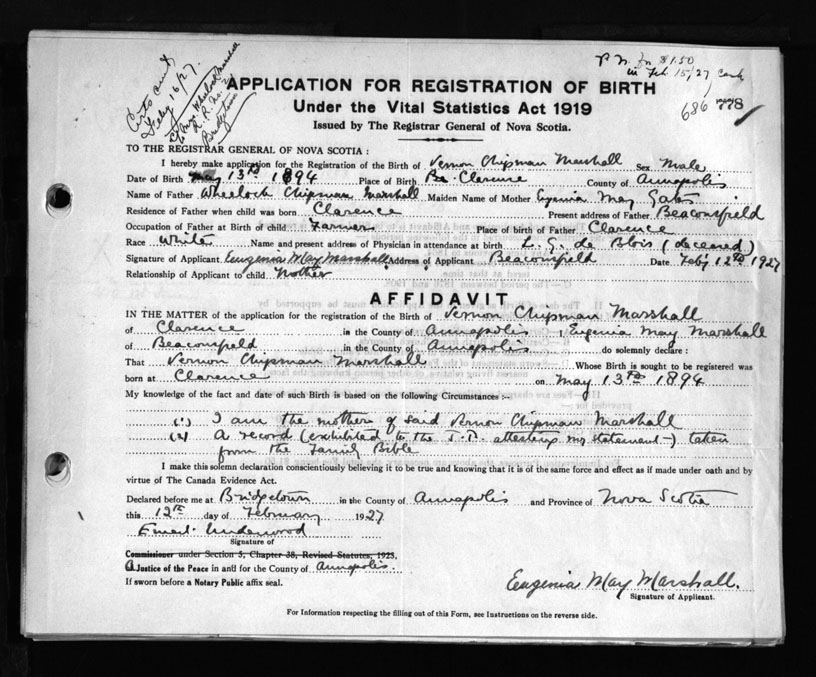 P. N. for $1.50
in Feb 15/27 Cash
Certs sent
Feby 16/27.
To Mrs. Wheelock Marshall
R. R. No. 2
Bridgetown
APPLICATION FOR REGISTRATION OF BIRTH
686 778
Under the Vital Statistics Act 1919
Issued by The Registrar General of Nova Scotia.
TO THE REGISTRAR GENERAL OF NOVA SCOTIA :
I hereby make application for the Registration of the Birth of Vernon Chipman Marshall Sex Male
Date of Birth May 13th 1894 Place of Birth Clarence County of Annapolis
Name of Father Wheelock Chipman Marshall Maiden Name of Mother Eugenia May Gates
Residence of Father when child was born Clarence Present address of Father Beaconsfield
Occupation of Father at Birth of child Farmer Place of birth of Father Clarence
Race White Name and present address of Physician in attendance at birth L. G. de Blois (deceased)
Signature of Applicant Eugenia May Marshall Address of Applicant Beaconsfield Date Feb'y 12th 1927
Relationship of Applicant to child Mother
AFFIDAVIT
IN THE MATTER of the application for the registration of the Birth of Vernon Chipman Marshall
of Clarence in the County of Annapolis I Eugenia May Marshall
of Beaconsfield in the County of Annapolis do solemnly declare :
That Vernon Chipman Marshall Whose Birth is sought to be registered was
born at Clarence on May 13th 1894
My knowledge of the fact and date of such Birth is based on the following Circumstances :—
(1) I am the mother of said Vernon Chipman Marshall
(2) A record (exhibited to the J.P. attesting my statement) taken
from the Family Bible
I make this solemn declaration conscientiously believing it to be true and knowing that it is of the same force and effect as if made under oath and by
virtue of The Canada Evidence Act.
Declared before me at Bridgetown in the County of Annapolis and Province of Nova Scotia
this 12th day of February 1927
Underwood
Signature of
Commissioner under Section 5, Chapter 38, Revised Statutes, 1923,
A Justice of the Peace in and for the County of Annapolis.
If sworn before a Notary Public affix seal.
Eugenia May Marshall.
Signature of Applicant.
For Information respecting the filling out of this Form, see Instructions on the reverse side.